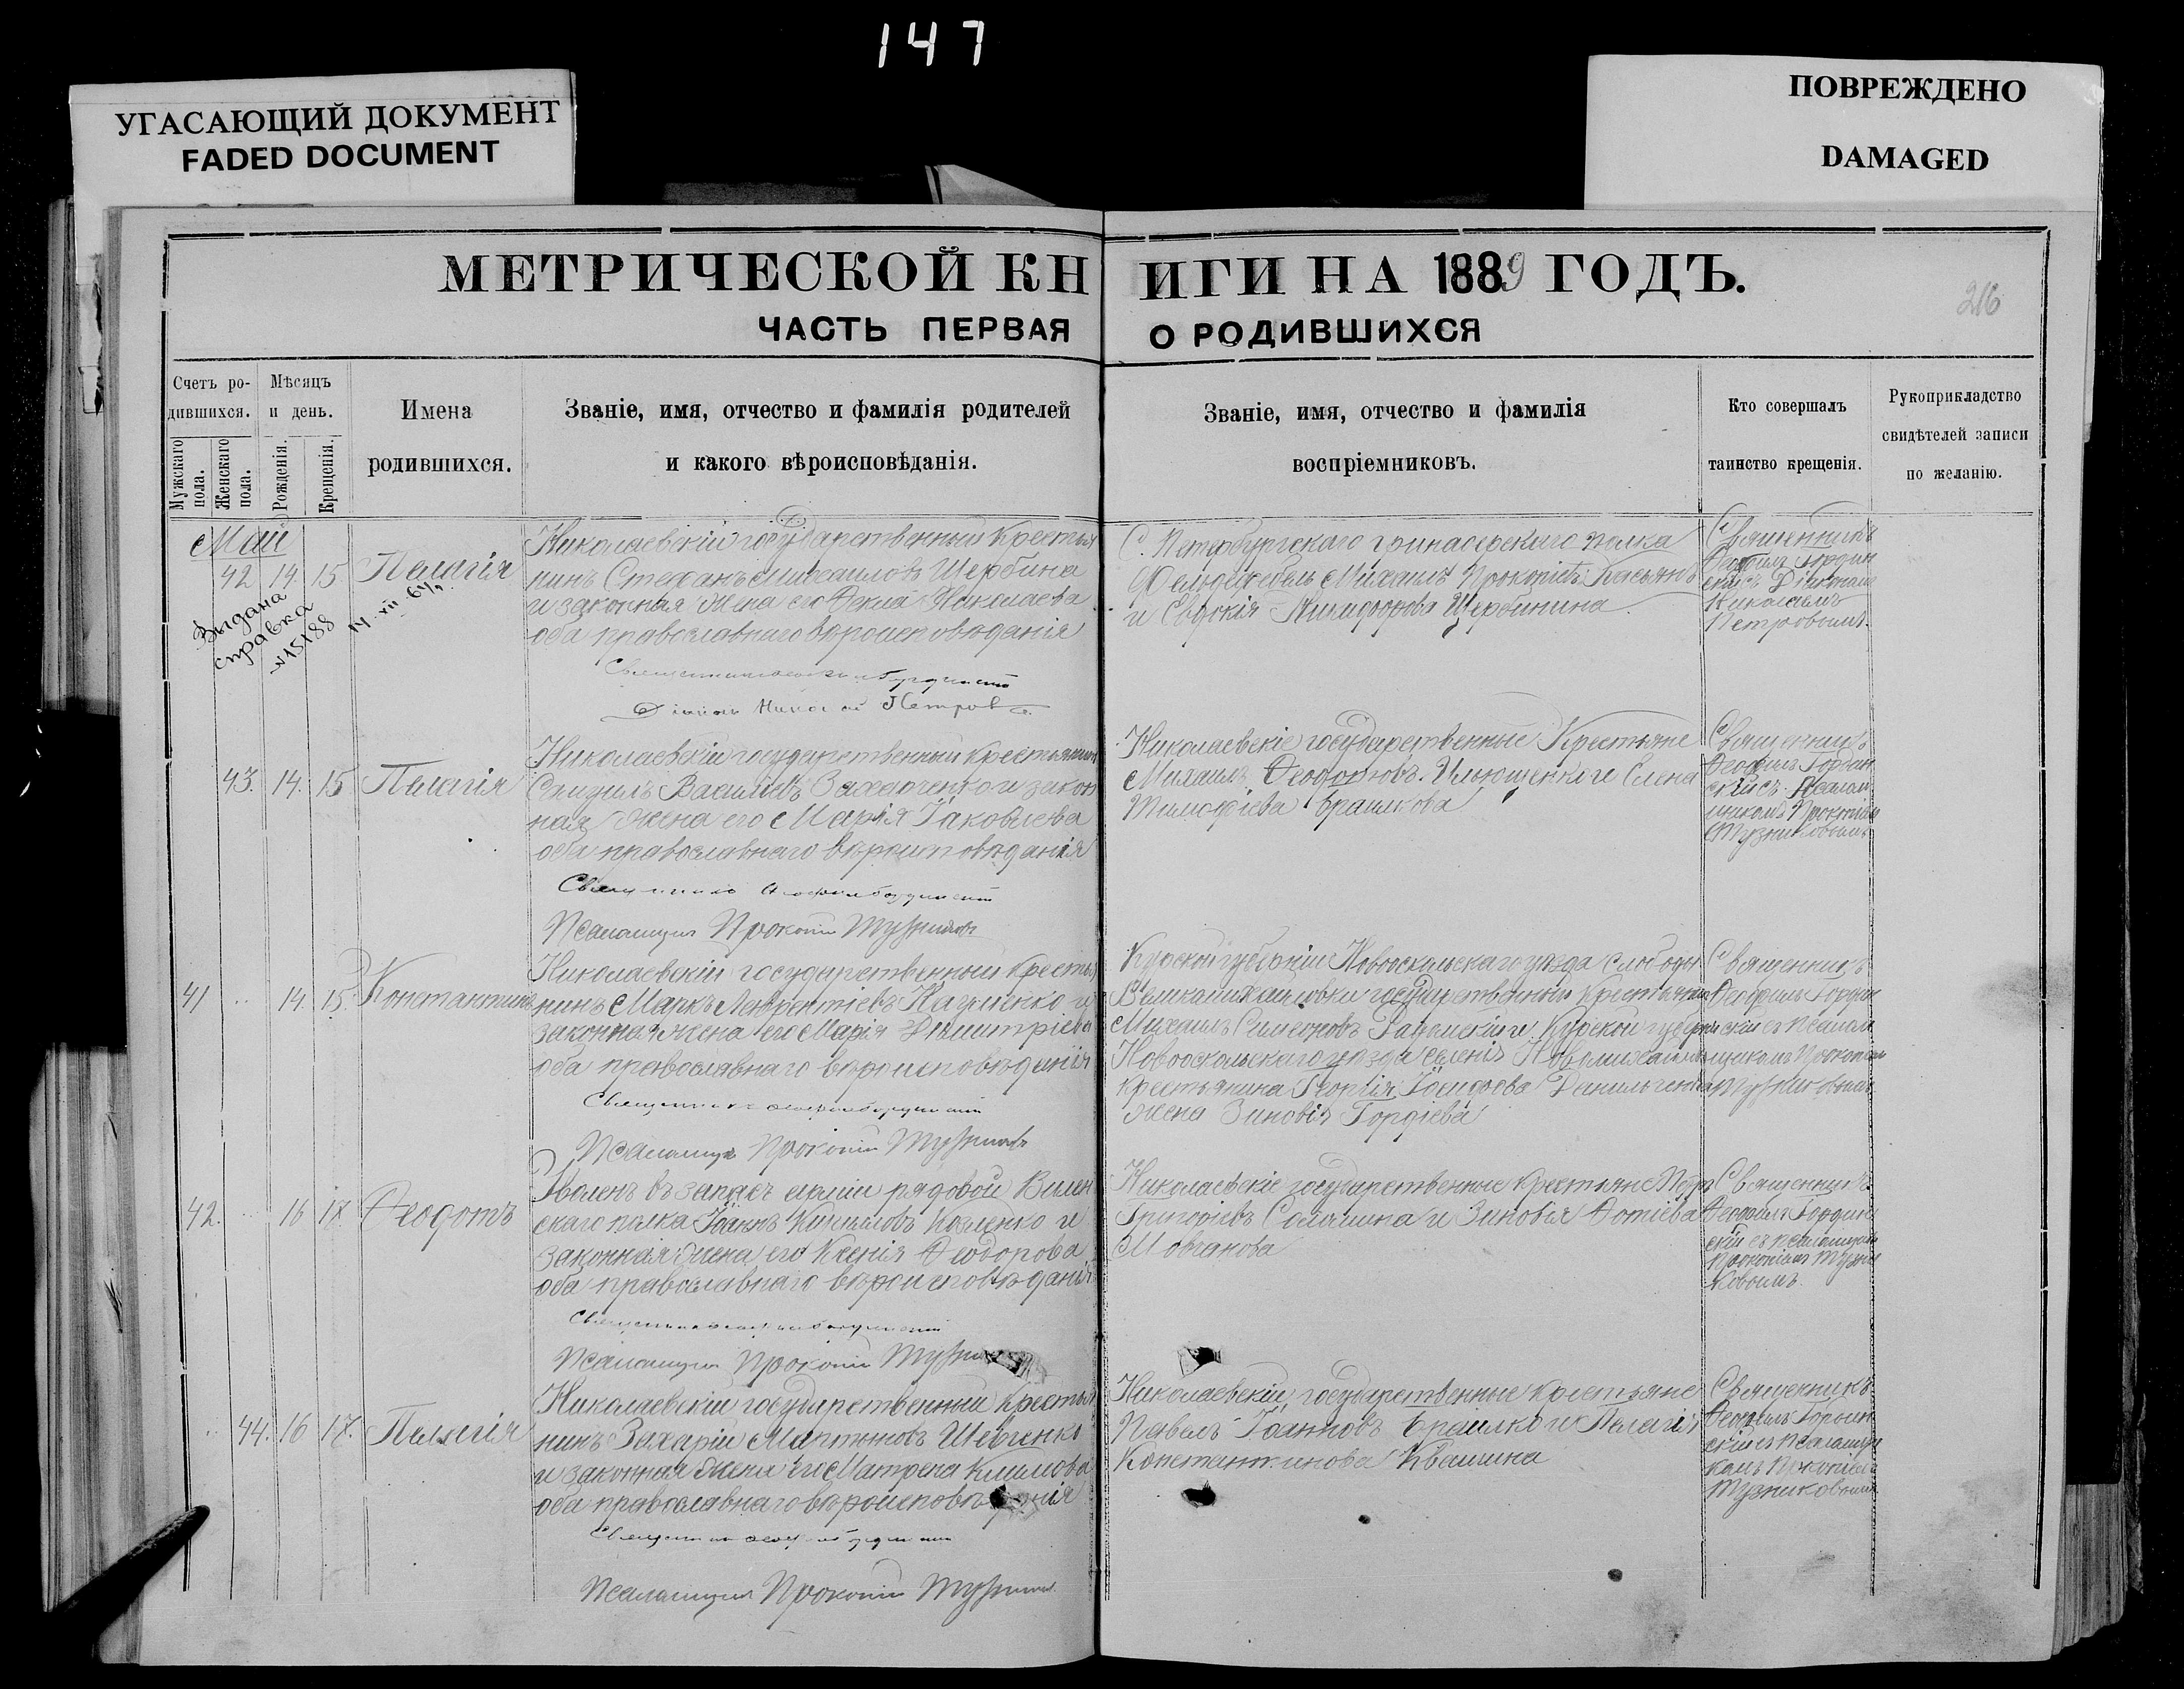 147
УГАСАЮЩИЙ ДОКУМЕНТ
FADED DOCUMENT
ПОВРЕЖДЕНО
DAMAGED
МЕТРИЧЕСКОЙ КНИГИ НА 1889 ГОДЪ.
216
ЧАСТЬ ПЕРВАЯ О РОДИВШИХСЯ
Счетъ ро-
дившихся.
Мужскаго пола.
Женскаго пола.
Мѣсяцъ
и день.
Рожденія.
Крещенія.
Имена
родившихся.
Званіе, имя, отчество и фамилія родителей
и какого вѣроисповѣданія.
Званіе, имя, отчество и фамилія
воспріемниковъ.
Кто совершалъ
таинство крещенія.
Рукоприкладство
свидѣтелей записи
по желанію.
Май
42 14 15 Пелагія
Выдана
справка
№15188
14.VII.64г.
Николаевскій государственный крестья
нинъ Стефанъ Михаиловъ Щербина
и законная жена его Фекла Николаева
оба православнаго вѣроисповѣданія
Діаконъ Николай Петровъ
С. Петербургскаго гринадерскаго полка
Фельдфебель Михаилъ Прокопіевъ Касьянъ
и Евдокія Никифорова Щербинина.
Священникъ
Діакономъ
Николаемъ
Петровымъ.
43. 14. 15 Пелагія
Николаевскій государственный крестьянин
Самуилъ Васильевъ Захарченко и закон
ная жена его Марія Іаковлева
оба православнаго вѣроисповѣданія
Псаломщикъ Прокопій Тузниковъ
Николаевскіе государственные Крестьяне
Михаилъ Феодоровъ Ильющенко и Елена
Тимофіева Ераилкова
Священникъ
Феофилъ Гордин
скій съ Псалом
щикомъ Прокопіем
Тузниковымъ
41 14. 15. Константинъ
Николаевскій государственный Крестья
нинъ Маркъ Лаврентіевъ и
законная жена его Марія Димитріева
оба православнаго вѣроисповѣданія
Псаломщикъ Прокопій Тузниковъ
Курской губерніи Новооскольскаго уѣзда слободы
Великомихаиловки государственный Крестьянин
Михаилъ Симеоновъ и Курской губерн
Новооскольскаго уѣзда
крестьянина Георгія Іосифова Данильченко
жена Зиновія Гордіева
Священникъ
Феофилъ Гордин
скій съ псалом
щикомъ Прокопіем
Тузниковымъ
42. 16 18 Феодотъ
Уволенъ въ запасъ арміи рядовой Вилен
скаго полка Іоаннъ Кириловъ Коваленко и
законная жена его Ксенія Феодорова
оба православнаго вѣроисповѣданія
Псаломщикъ Прокопій
Николаевскіе государственные крестьяне Петръ
Григоріевъ Саламина и Зиновія Фотіева
Мовчанова
Священникъ
Феофилъ Гордин
скій съ псаломщиком
Прокопіемъ Тузни
ковымъ.
44. 16 17. Пелагія
Николаевскій государственный крестья
нинъ Захарій Мартыновъ Шевченко
и законная жена его Матрена Климова
оба православнаго вѣроисповѣданія
Псаломщикъ Прокопій Тузниковъ
Николаевскіи государственные крестьяне
Павелъ Іоанновъ Ераилко и Пелагія
Константинова Квашина
Священникъ
Феофилъ Гордин
скій съ Псаломщи
комъ Прокопіемъ
Тузниковымъ